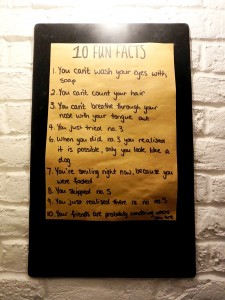 10 FUN FACTS
1. You can't wash your eyes with
soap
2. You can't count your hair
3. You can't breathe through your
nose with your tongue out
4. You just tried no. 3
6. When you did no. 3 you realised
it is possible, only you look like a
dog
7. You're smiling right now, because you
were fooled
8. You skipped no. 5
9. You just realised there is no no. 5
10. Your friends are probably
you are